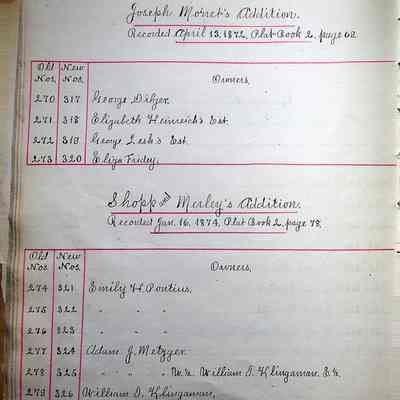 Joseph Morret's Addition.
Recorded April 13, 1872, Plat Book 2, page 62
Old Nos. New Nos. Owners.
270 317 George Dilger
271 318 Elizabeth Heinrich's Est.
272 319 George Lesh's Est.
273 320 Eliza Friday.
Shopp and Merley's Addition.
Recorded Jan. 16, 1874, Plat Book 2, page 78.
Old Nos. New Nos. Owners.
274 321 Emily H. Pontius.
275 322 " " "
276 323 " " "
277 324 Adam J. Metzger
278 325 " " " W. ½ William I. Klingaman E. ½
279 326 William I. Klingaman,